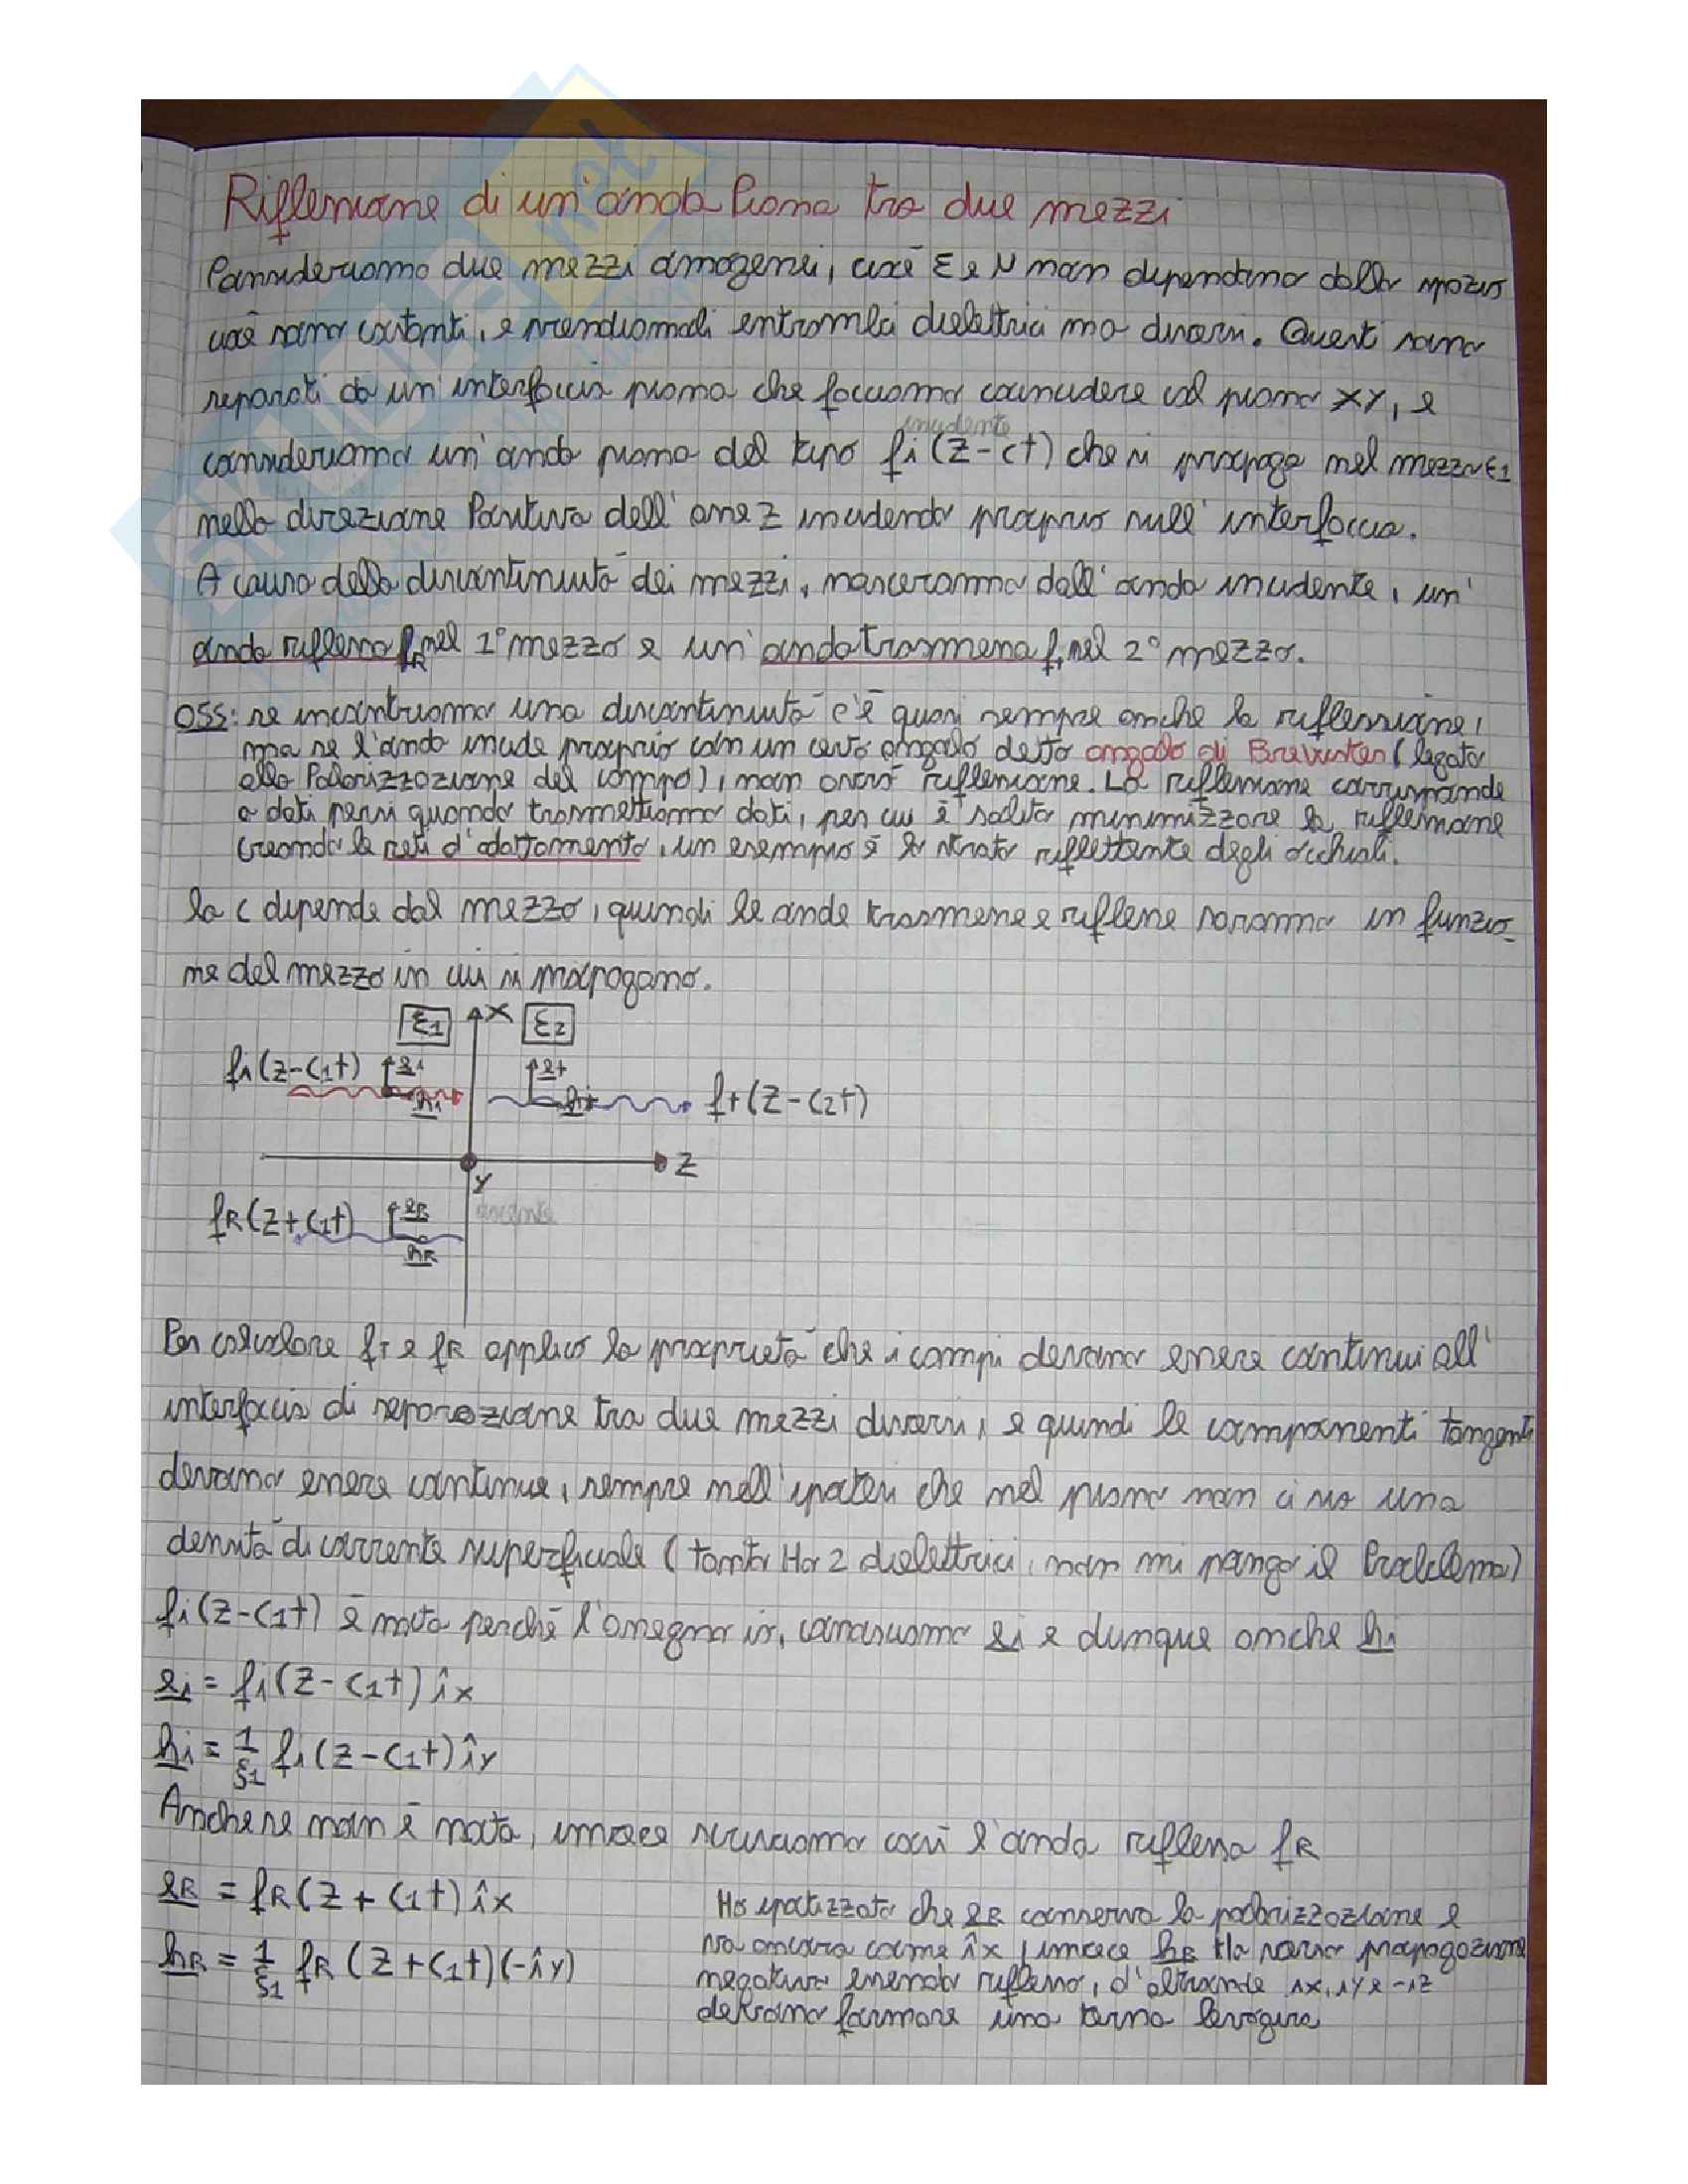 Riflessione di un'onda Piana tra due mezzi
Consideriamo due mezzi omogenei, cioè ε e μ non dipendono dallo spazio
cioè sono costanti, e prendiamoli entrambi dielettrici ma diversi. Questi sono
separati da un'interfaccia piana che facciamo coincidere col piano XY, e
incidente
consideriamo un'onda piana del tipo fi(z-ct) che si propaga nel mezzo ε1
nella direzione Positiva dell'asse z incidendo proprio sull'interfaccia.
A causa della discontinuità dei mezzi, nasceranno dall'onda incidente, un'
onda riflessa fR nel 1° mezzo e un'onda trasmessa ft nel 2° mezzo.
OSS: se incontriamo una discontinuità c'è quasi sempre anche la riflessione,
ma se l'onda incide proprio con un certo angolo detto angolo di Brewster (legato
alla Polarizzazione del campo), non avrò riflessione. La riflessione corrisponde
a dati persi quando trasmettiamo dati, per cui è solito minimizzare la riflessione
creando le reti d'adattamento, un esempio è lo strato riflettente degli occhiali.
la c dipende dal mezzo, quindi le onde trasmesse e riflesse saranno in funzio-
ne del mezzo in cui si propagano.
ε1 X ε2
fi(z-c1t) ei et
hi ht ft(z-c2t)
Z
Y
fR(z+c1t) eR
hR
Per calcolare fT e fR applico la proprietà che i campi devono essere continui all'
interfaccia di separazione tra due mezzi diversi, e quindi le componenti tangenti
devono essere continue, sempre nell'ipotesi che nel piano non ci sia una
densità di corrente superficiale (tanto Ho 2 dielettrici, non mi pongo il Problema)
fi(z-c1t) è nota perché l'assegno io, conosciamo ei e dunque anche hi
ei = fi(z-c1t) îx
hi = 1/ξ1 fi(z-c1t) îy
Anche se non è nota, invece scriviamo così l'onda riflessa fR
eR = fR(z+c1t) îx
hR = 1/ξ1 fR (z+c1t)(-îy)
Ho ipotizzato che eR conserva la polarizzazione e
va ancora come îx, invece hR Ha verso propagazione
negativo essendo riflesso, d'altronde ix, iy e -iz
devono formare una terna levogira